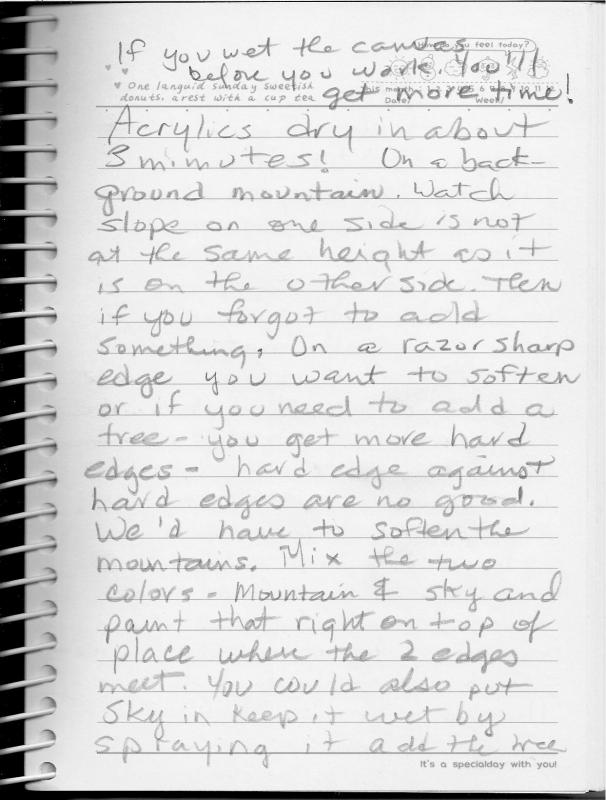 If you wet the canvas
How do you feel today?
before you work. You'll
♥ One languid sunday sweetish
donuts. arest with a cup tea
get more time!
This month 1 2 3 4 5 6 7 8 9 10 11 12
Date/ Week/
Acrylics dry in about
3 minutes! On a back-
ground mountain. Watch
slope on one side is not
at the same height as it
is on the other side. Then
if you forgot to add
something, On a razor sharp
edge you want to soften
or if you need to add a
tree - you get more hard
edges - hard edge against
hard edges are no good.
We'd have to soften the
mountains. Mix the two
colors - Mountain & sky and
paint that right on top of
place where the 2 edges
meet. You could also put
sky in keep it wet by
spraying it add the tree
It's a specialday with you!